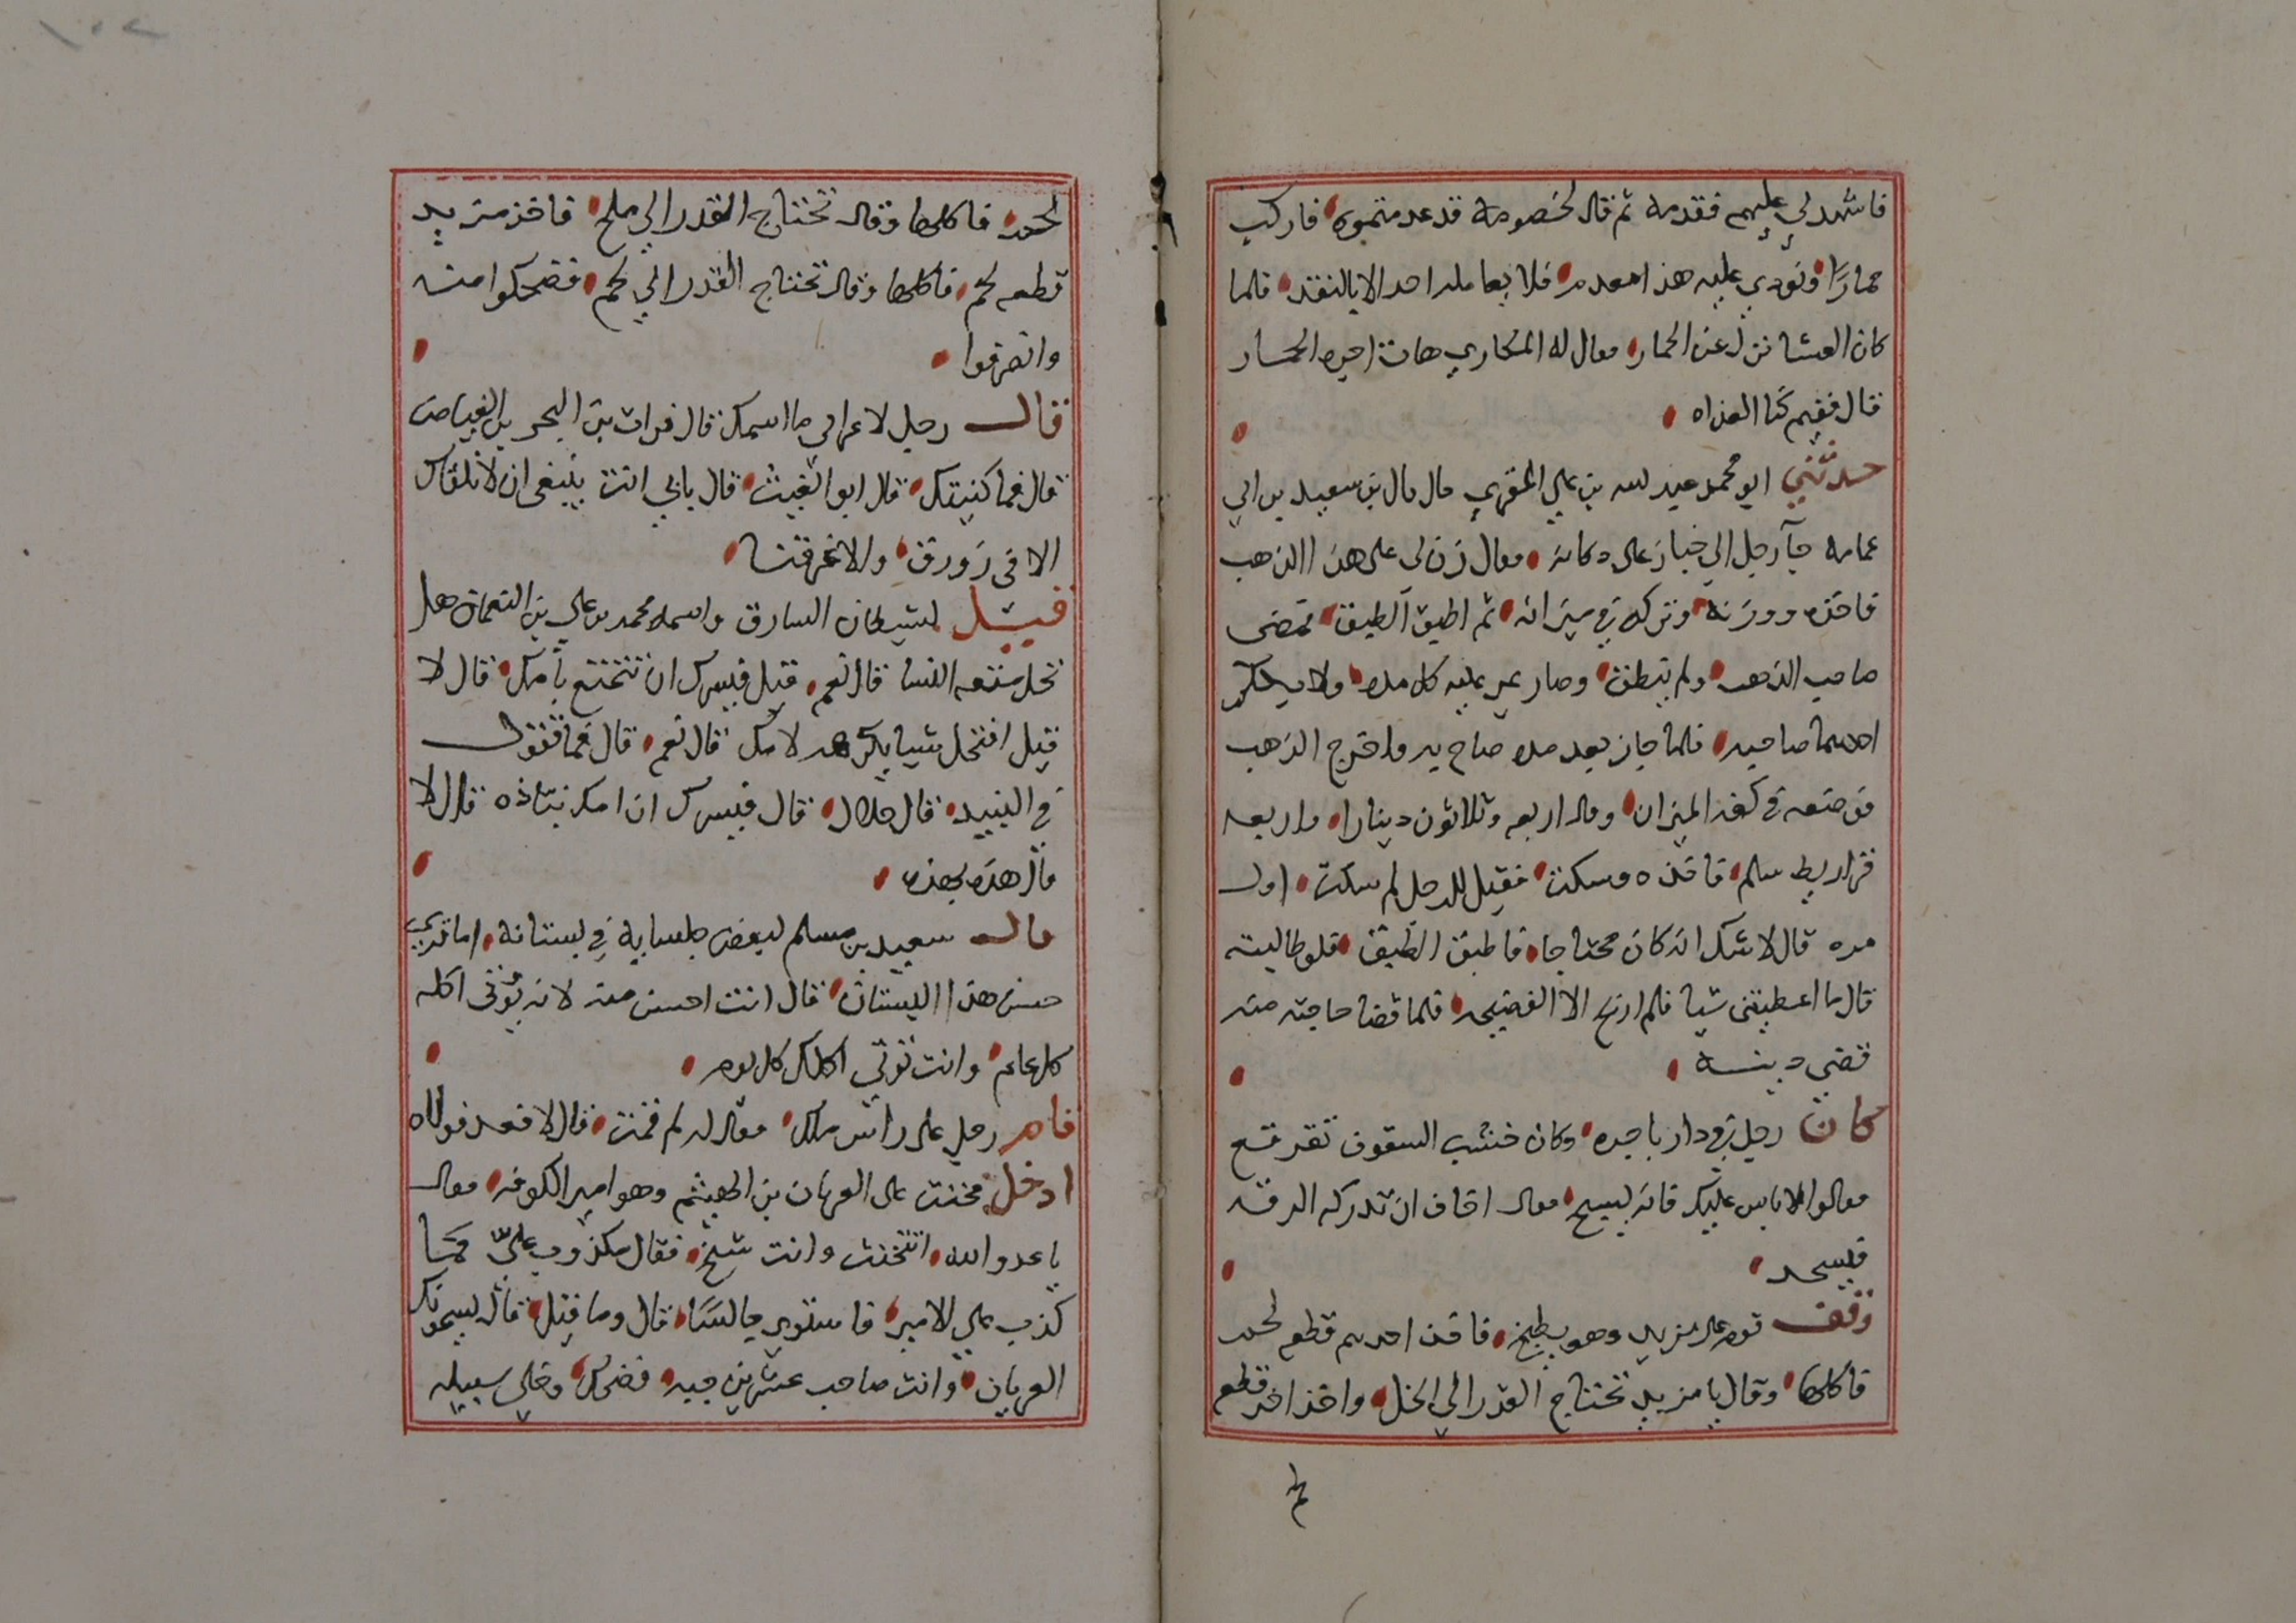 فاشهد لي عليهم فقدمه ثم قال لخصومه قد عدمتموه فاركب
حمارًا ونودي عليه هذا معدم فلا يعامله احد الا بالنقد فلما
كان العشا نزل عن الحمار فقال له المكاري هات اجره الحمار
قال ففيم كنا الغداه
حدثني ابو محمد عبد لله بن علي المقري قال قال بن سعيد بن ابي
عمامه جآ رجل الي خباز على دكانه فقال زن لى على هذا الذهب
فاخذه ووزنه وتركه في ميزانه ثم اطبق الطبق فمضى
صاحب الذهب ولم ينطق وصار يمر عليه كل مده ولا يكلم
احدهما صاحبه فلما جاز بعد مده صاح به واخرج الذهب
فوضعه في كفه الميزان وقال اربعه وثلاثون دينارا واربعه
قراريط سلم فاخذه وسكت فقيل للرجل لم سكت اول
مره قال لا شك انه كان محتاجا فاطبق الطبق فلو طالبته
قال ما اعطيتني شيا فلم اربح الا الفضيحه فلما قضا حاجته منه
قضي دينه
كان رجل في دار باجره وكان خشب السقوف تقرقع
فقالوا لا باس عليك فانه يسبح فقال اخاف ان تدركه الرقه
فيسجد
وقف قوم على مزبد وهو يطبخ فاخذ احدهم قطعه لحم
فاكلها وقال يا مزبد تحتاج القدر الي الخل واخذ اخر قطعه
لحم فاكلها وقال تحتاج القدر الي ملح فاخذ مزبد
قطعه لحم فاكلها وقال تحتاج القدر الي لحم فضحكوا منه
وانصرفوا
قال رجل لاعرابي ما اسمك قال فرات بن البحر بن الفياض
قال فما كنيتك قال ابو الغيث قال بابي انت ينبغى ان لا نلقاك
الا في زورق والا غرقتنا
قيل لشيطان السارق واسمه محمد بن علي بن النعمان هل
تحل متعه النسا قال نعم قيل فيسرك ان تتمتع بامك قال لا
قيل افتحل شيا يكره لامك قال نعم قال فما تقول
في النبيد قال حلال قال فيسرك ان امك نباذه قال لا
قال هذه بهذه
قال سعيد بن مسلم لبعض جلسايه في بستانه اما تري
حسن هذا البستان قال انت احسن منه لانه يوتى اكله
كل عام وانت توتي اكلك كل يوم
قام رجل على راس ملك فقال له لم قمت قال لاقعد فولاه
ادخل مخنث على العريان بن الهيثم وهو امير الكوفه فقال
يا عدو الله اتتخنث وانت شيخ فقال مكذوب عليّ كما
كذب علي الامير فاستوي جالسًا قال وما قيل قال يسمونك
العريان وانت صاحب عشرين جبه فضحك وخلي سبيله